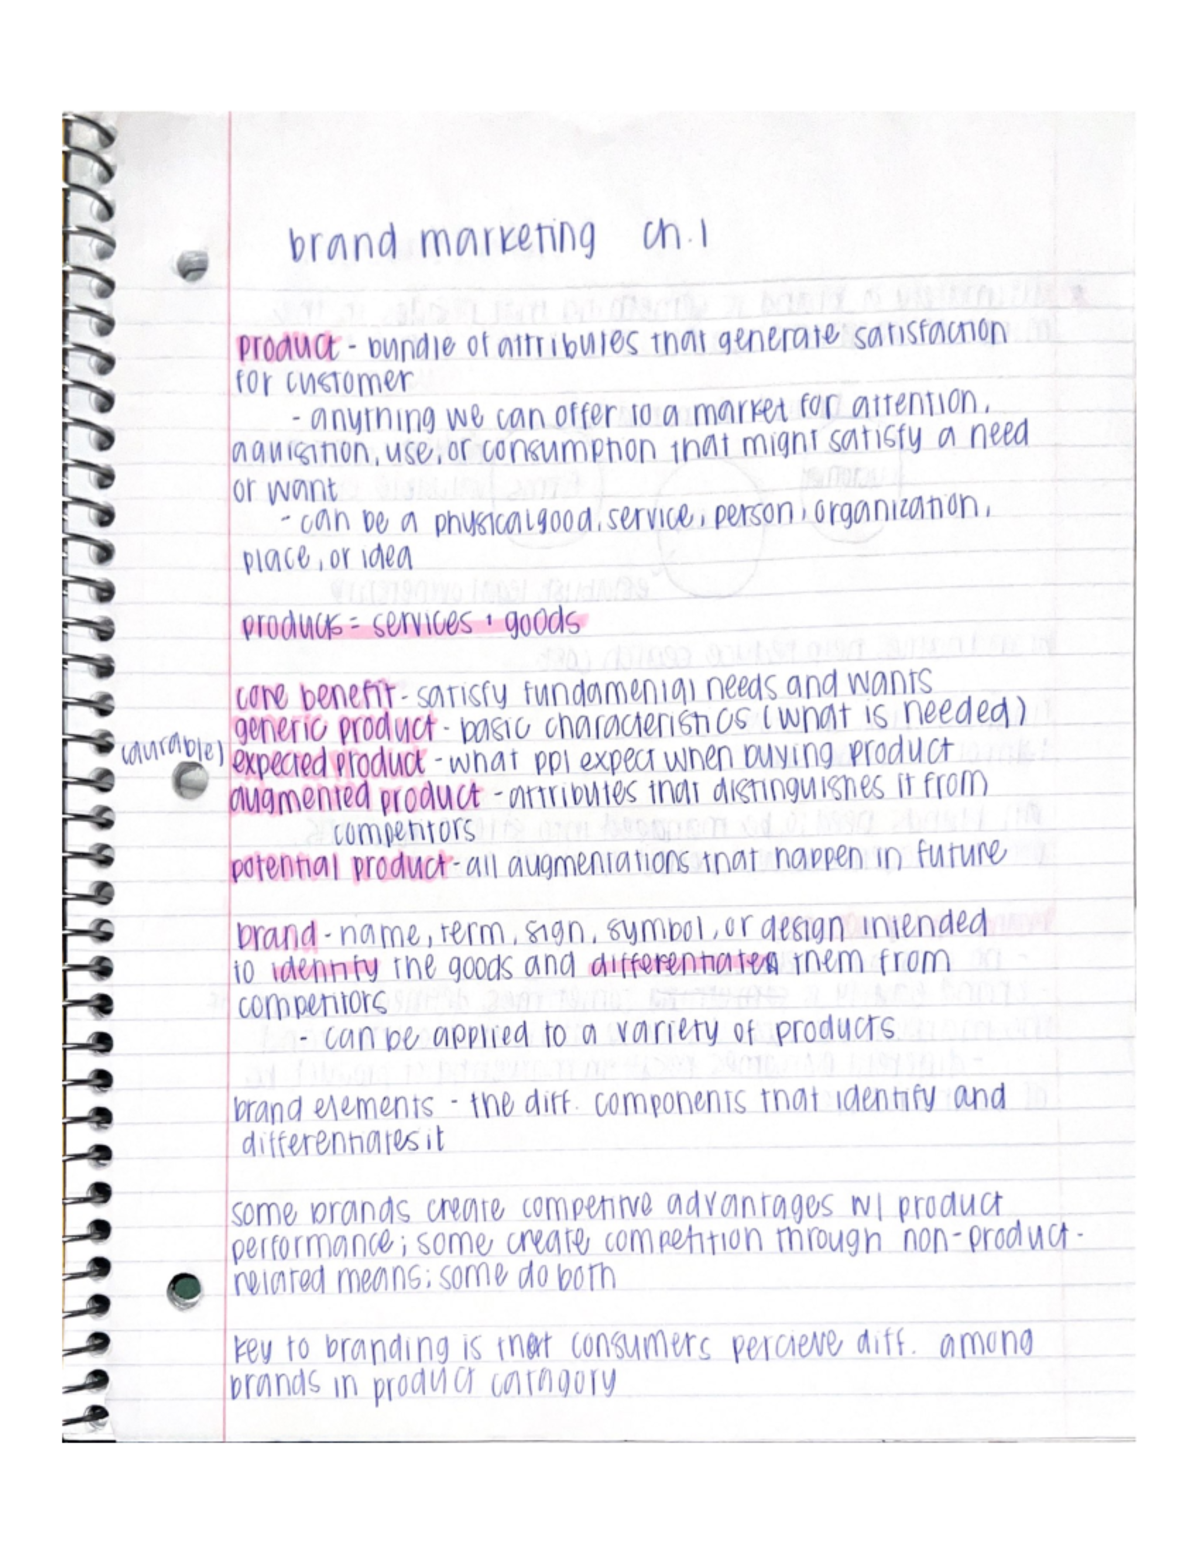 brand marketing ch. 1
product - bundle of attributes that generate satisfaction
for customer
- anything we can offer to a market for attention,
aquisition, use, or consumption that might satisfy a need
or want
- can be a physical good, service, person, organization,
place, or idea
products = services + goods
core benefit - satisfy fundamental needs and wants
generic product - basic characteristics (what is needed)
(durable) expected product - what ppl expect when buying product
augmented product - attributes that distinguishes it from
competitors
potential product - all augmentations that happen in future
brand - name, term, sign, symbol, or design intended
to identify the goods and differentiate them from
competitors
- can be applied to a variety of products
brand elements - the diff. components that identify and
differentiates it
some brands create competitive advantages w/ product
performance; some create competition through non-product-
related means; some do both
key to branding is that consumers percieve diff. among
brands in product catagory